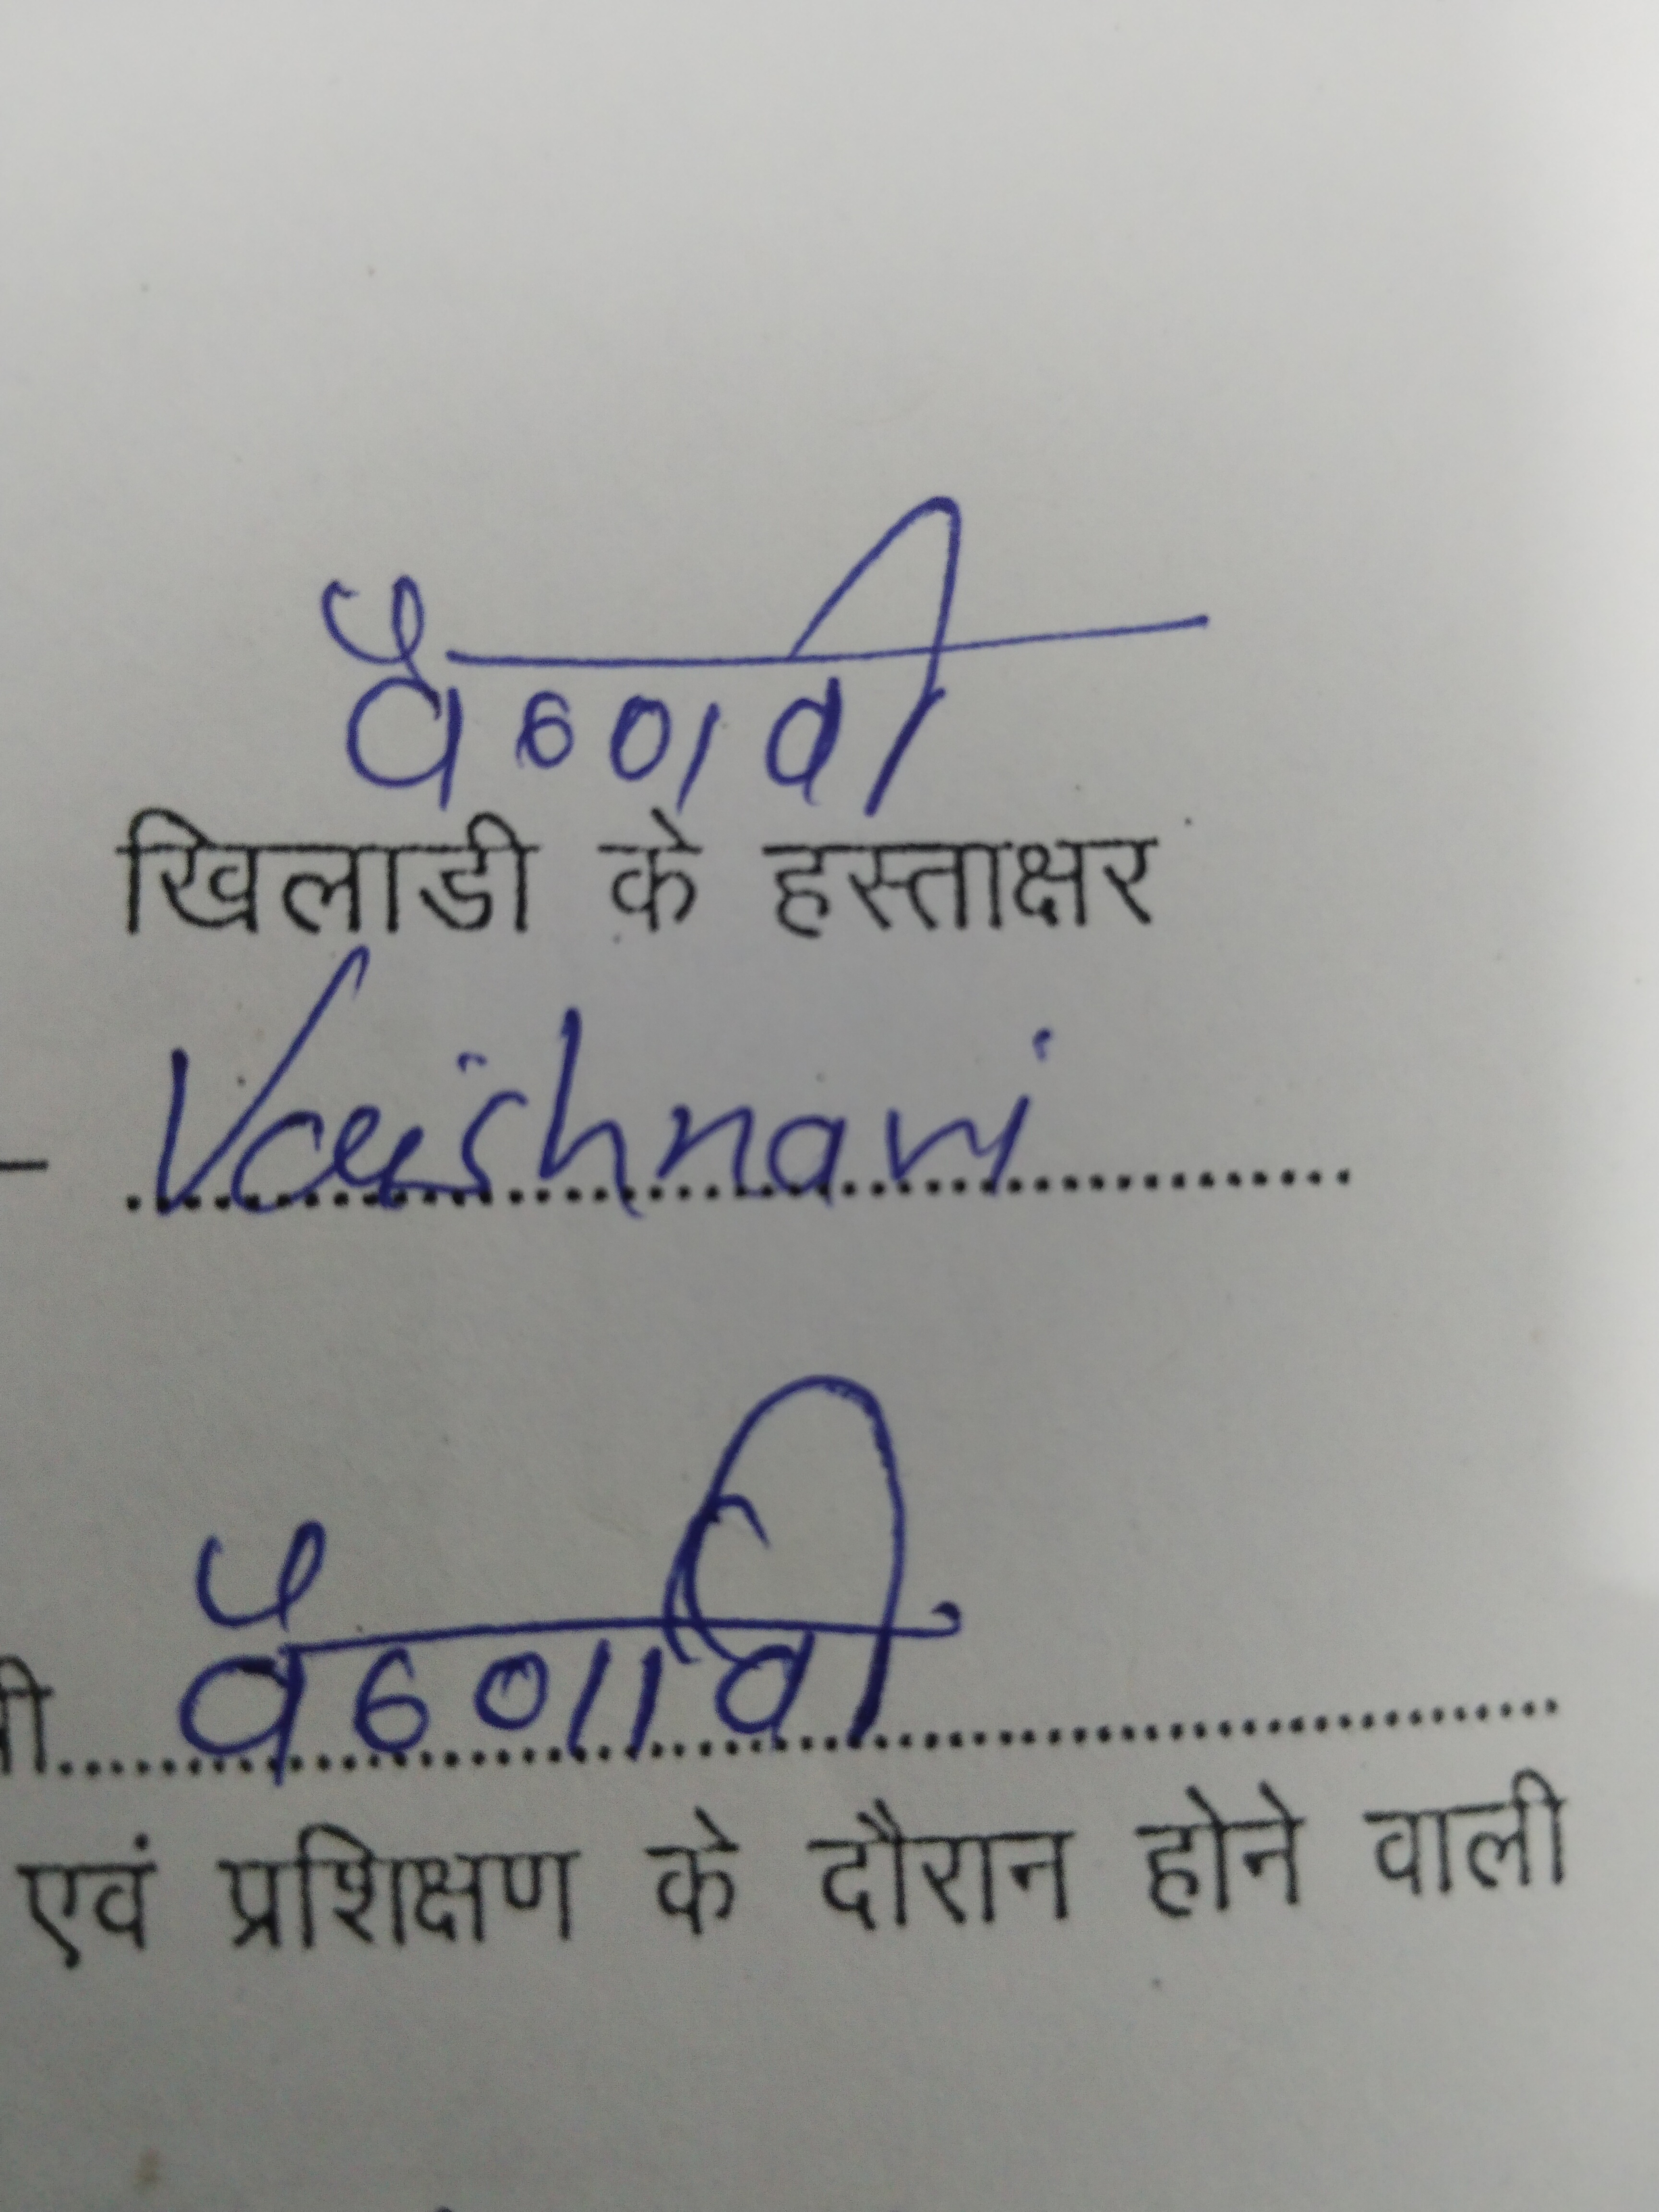 वैष्णवी
खिलाडी के हस्ताक्षर
– Vaishnavi
वैष्णवी
एवं प्रशिक्षण के दौरान होने वाली